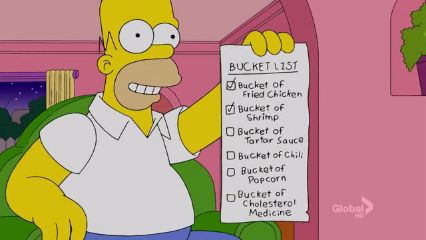 BUCKET LIST
Bucket of
Fried Chicken
Bucket of
Shrimp
Bucket of
Tartar Sauce
Bucket of Chili
Bucket of
Popcorn
Bucket of
Cholesterol
Medicine
Global
HD